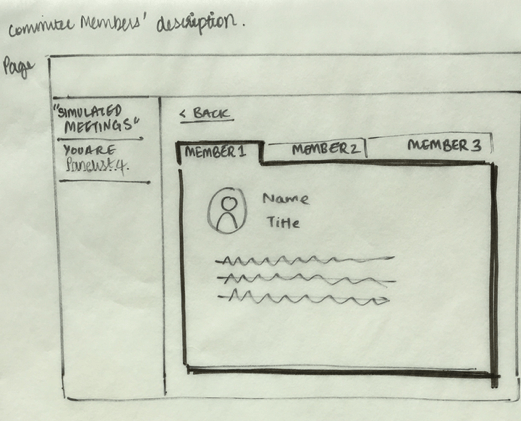 Committee Members' description.
Page
"SIMULATED
MEETINGS"
YOU ARE
Panelist 4.
< BACK
MEMBER 1
MEMBER 2
MEMBER 3
Name
Title